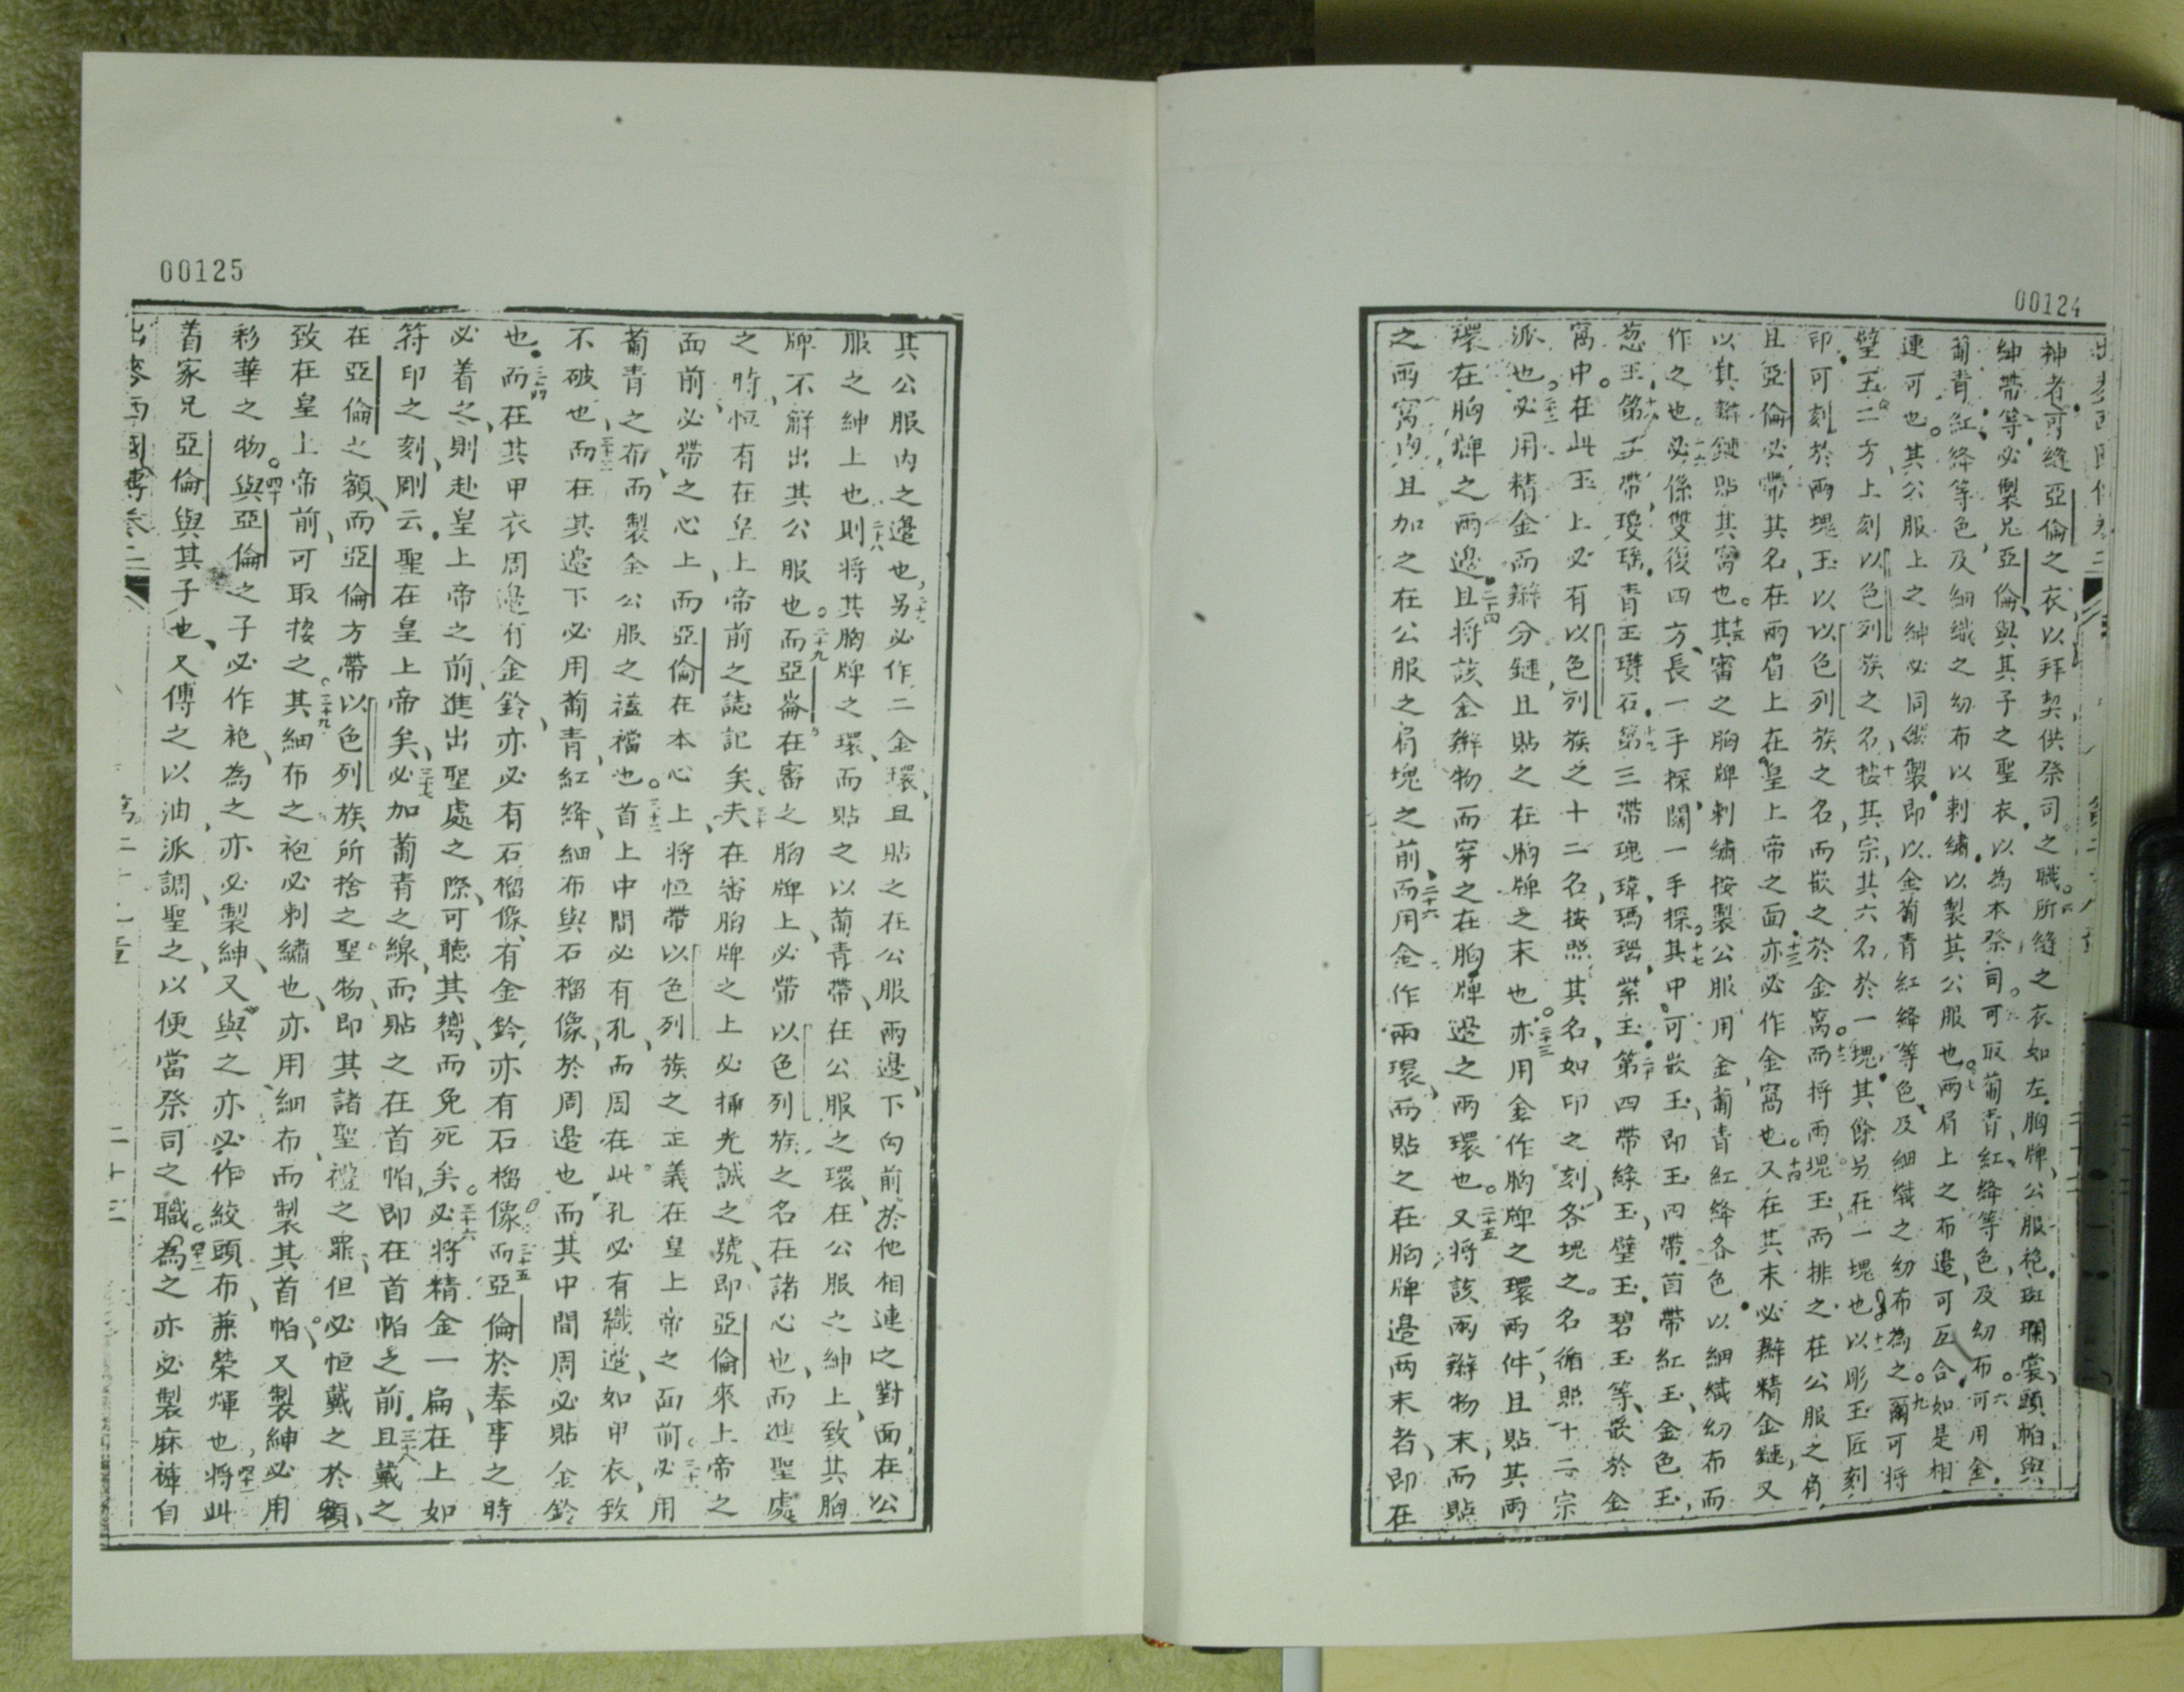 00124
神者可縫亞倫之衣以拜契供祭司之職所縫之衣如左胸牌公服袍斑斕裳頭帕與
紳帶等必製兄亞倫與其子之聖衣以為本祭司可取葡青紅絳等色及幼布六可用金
葡青紅絳等色及細織之幼布以刺繡以製其公服也七兩肩上之布邊可互合如是相
連可也其公服上之紳必同樣製即以金葡青紅絳等色及細織之幼布為之九爾可將
璧玉二方上刻以色列族之名十按其宗其六名於一塊其餘另在一塊也十一以彫玉匠刻
印可刻於兩塊玉以以色列族之名而嵌之於金窩十二而將兩塊玉而排之在公服之肩
且亞倫必帶其名在兩肩上在皇上帝之面十三亦必作金窩也十四又在其末必辮精金鏈又
以其辮鏈貼其窩也十五其審之胸牌刺繡按製公服用金葡青紅絳各色以細織幼布而
作之也十六必係雙復四方長一手探闊一手探十七其中可嵌玉即玉四帶首帶紅玉金色玉
葱玉十八第子帶瓊瑤青玉瓚石十九第三帶瑰瑋瑪瑙紫玉二十第四帶綠玉璧玉碧玉等嵌於金
窩中在此玉上必有以色列族之十二名按照其名如印之刻各塊之名循照十二宗
派也二十二必用精金而辮分鏈且貼之在胸牌之末也二十三亦用金作胸牌之環兩件且貼其兩
環在胸牌之兩邊二十四且將該金辮物而穿之在胸牌邊之兩環也二十五又將該兩辮物末而貼
之兩窩內且加之在公服之肩塊之前二十六而用金作兩環而貼之在胸牌邊兩末者即在
00125
其公服內之邊也二十七另必作二金環且貼之在公服兩邊下向前於他相連之對面在公
服之紳上也二十八則將其胸牌之環而貼之以葡青帶在公服之環在公服之紳上致其胸
牌不解出其公服也二十九而亞崙在審之胸牌上必帶以色列族之名在諸心也而進聖處
之時恒有在皇上帝前之誌記矣三十夫在審胸牌之上必插光誠之號即亞倫來上帝之
面前必帶之心上而亞倫在本心上將恒帶以色列族之正義在皇上帝之面前三十一必用
葡青之布而製全公服之襤襠也三十二首上中間必有孔而周在此孔必有織邊如甲衣致
不破也三十三而在其邊下必用葡青紅絳細布與石榴像於周邊也而其中間周必貼金鈴
也三十四而在其甲衣周邊有金鈴亦必有石榴像有金鈴亦有石榴像三十五而亞倫於奉事之時
必着之則赴皇上帝之前進出聖處之際可聽其嚮而免死矣三十六必將精金一扁在上如
符印之刻刷云聖在皇上帝矣三十七必加葡青之線而貼之在首帕即在首帕之前三十八且戴之
在亞倫之額而亞倫方帶以色列族所捨之聖物即其諸聖禮之罪但必恒戴之於額
致在皇上帝前可取接之三十九其細布之袍必刺繡也亦用細布而製其首帕又製紳必用
彩華之物四十與亞倫之子必作袍為之亦必製紳又與之亦必作絞頭布蕪榮煇也四十一將此
着家兄亞倫與其子也又傅之以油派調聖之以便當祭司之職四十二為之亦必製麻褲自
出麥西國傳卷二